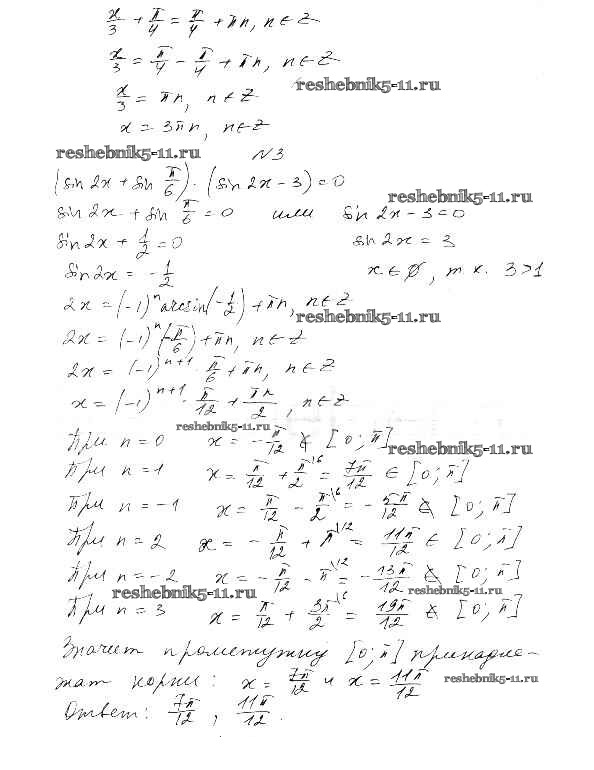 x/3 + π/4 = π/4 + πn, n∈Z
x/3 = π/4 - π/4 + πn, n∈Z
reshebnik5-11.ru
x/3 = πn, n∈Z
x = 3πn, n∈Z
reshebnik5-11.ru №3
(sin 2x + sin π/6) · (sin 2x - 3) = 0
reshebnik5-11.ru
sin 2x + sin π/6 = 0 или sin 2x - 3 = 0
sin 2x + 1/2 = 0 sin 2x = 3
sin 2x = -1/2 x∈∅, т.к. 3>1
2x = (-1)^n arcsin(-1/2) + πn, n∈Z
reshebnik5-11.ru
2x = (-1)^n (-π/6) + πn, n∈Z
2x = (-1)^(n+1) · π/6 + πn, n∈Z
x = (-1)^(n+1) · π/12 + πn/2, n∈Z
reshebnik5-11.ru
При n=0 x = -π/12 ∉ [0; π]
reshebnik5-11.ru
При n=1 x = π/12 + π/2^\6 = 7π/12 ∈ [0; π]
При n=-1 x = π/12 - π/2^\6 = -5π/12 ∉ [0; π]
При n=2 x = -π/12 + π^\12 = 11π/12 ∈ [0; π]
При n=-2 x = -π/12 - π^\12 = -13π/12 ∉ [0; π]
reshebnik5-11.ru reshebnik5-11.ru
При n=3 x = π/12 + 3π/2^\6 = 19π/12 ∉ [0; π]
Значит промежутку [0; π] принадле-
жат корни: x = 7π/12 и x = 11π/12 reshebnik5-11.ru
Ответ: 7π/12, 11π/12.